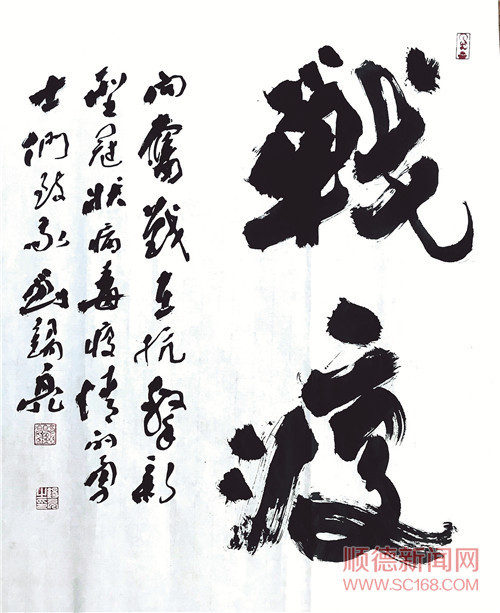 戰疫
向奮戰在抗擊新
型冠狀病毒疫情的勇
士們致敬 錫亮
顺德新闻网
WWW.SC168.COM